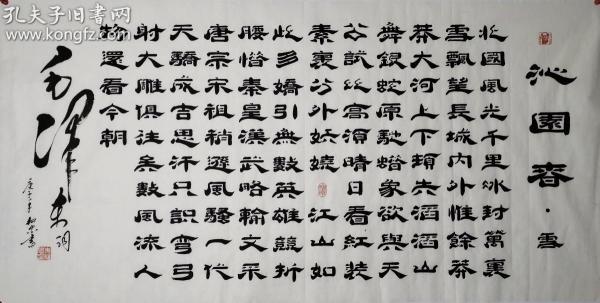 孔夫子旧书网
www.kongfz.com
沁園春·雪
北國風光千里冰封萬裏
雪飄望長城内外惟餘莽
莽大河上下頓失滔滔山
舞銀蛇原馳蠟象欲與天
公試比高須晴日看紅裝
素裹分外妖嬈 江山如
此多嬌引無數英雄競折
腰惜秦皇漢武略輸文采
唐宗宋祖稍遜風騷一代
天驕成吉思汗只識彎弓
射大雕俱往矣數風流人
物還看今朝
毛澤东詞